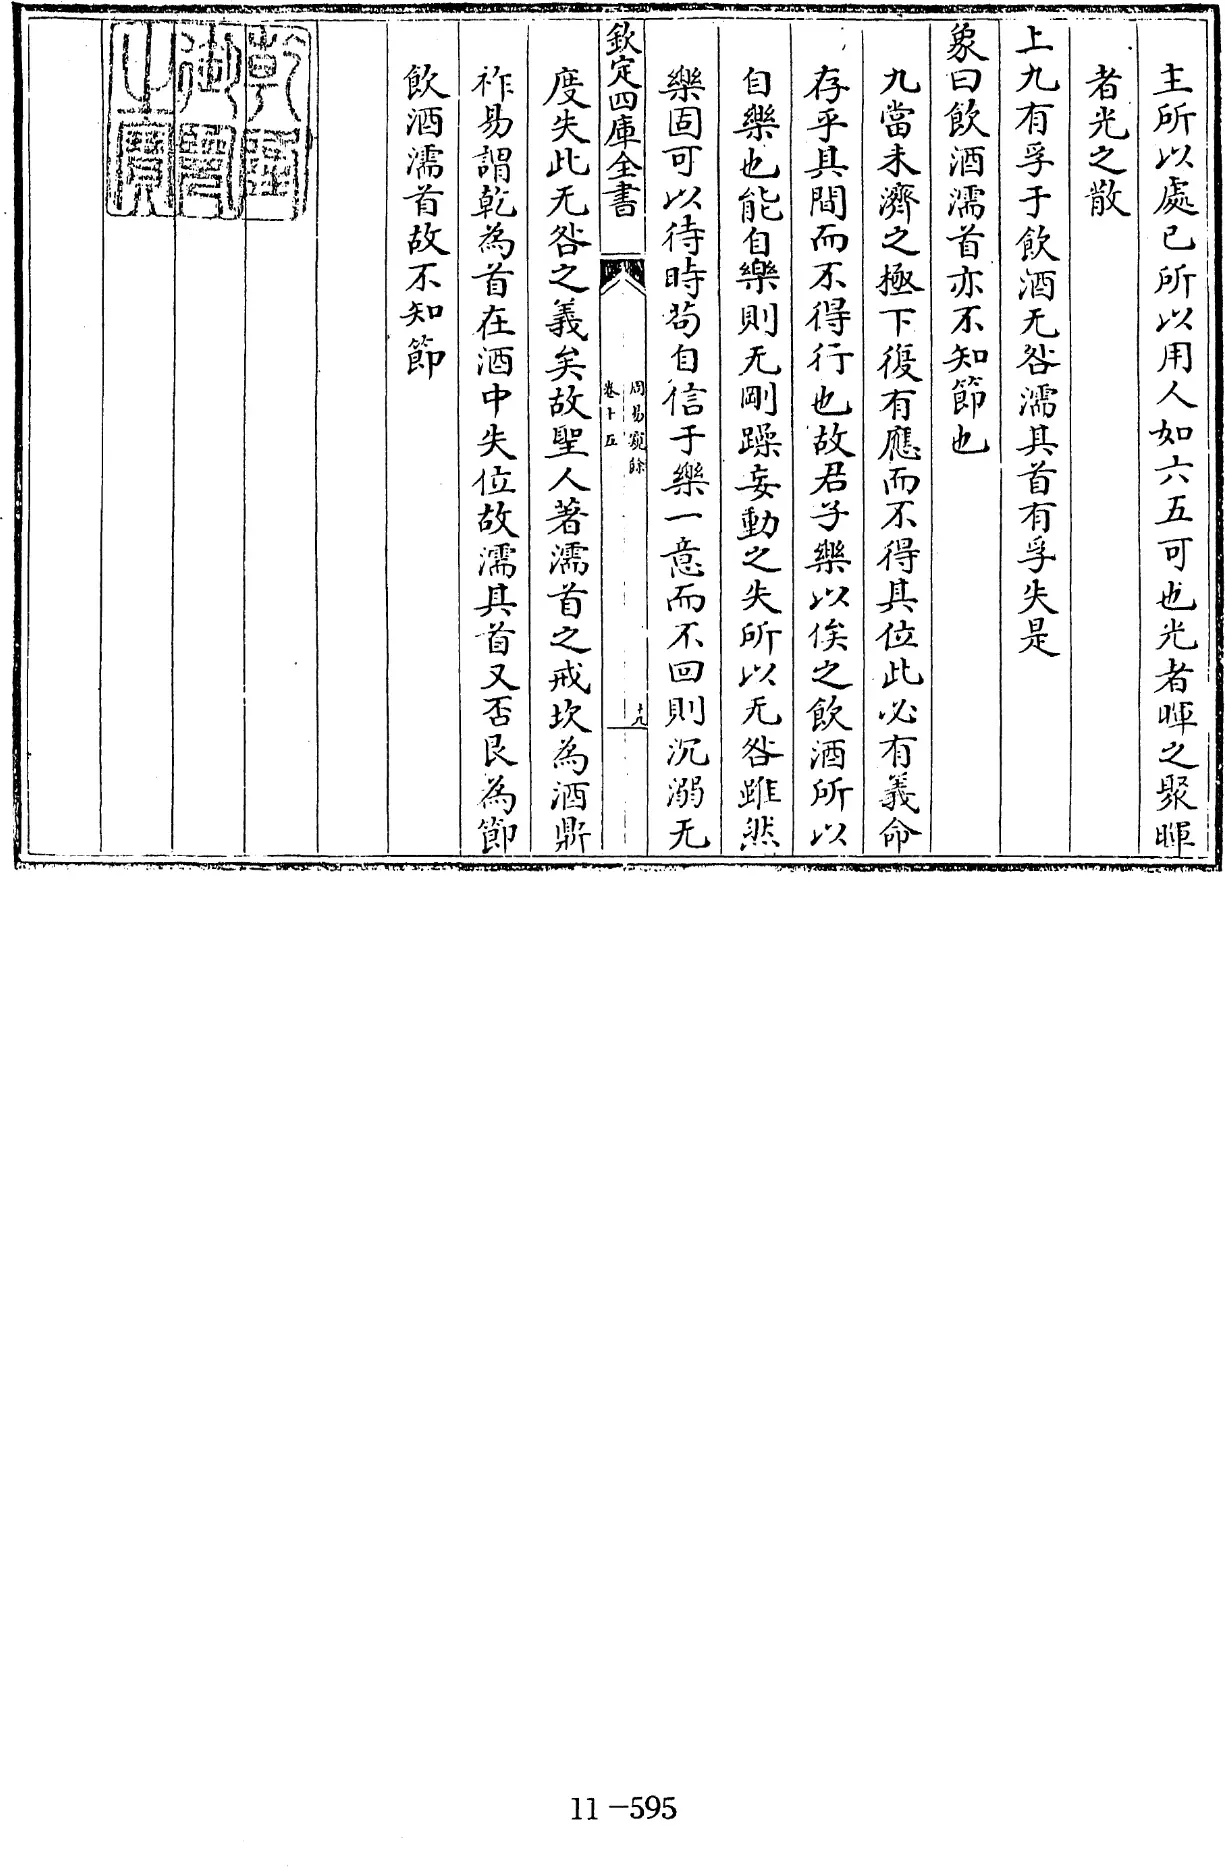 主所以處已所以用人如六五可也光者暉之聚暉
者光之散
上九有孚于飲酒无咎濡其首有孚失是
象曰飲酒濡首亦不知節也
九當未濟之極下復有應而不得其位此必有義命
存乎其間而不得行也故君子樂以俟之飲酒所以
自樂也能自樂則无剛躁妄動之失所以无咎雖然
樂固可以待時茍自信于樂一意而不回則沉溺无
欽定四庫全書
周易窺餘
卷十五
十九
度失此无咎之義矣故聖人著濡首之戒坎為酒鼎
祚易謂乾為首在酒中失位故濡其首又否艮為節
飲酒濡首故不知節
乾隆
御覽
之寶
11-595